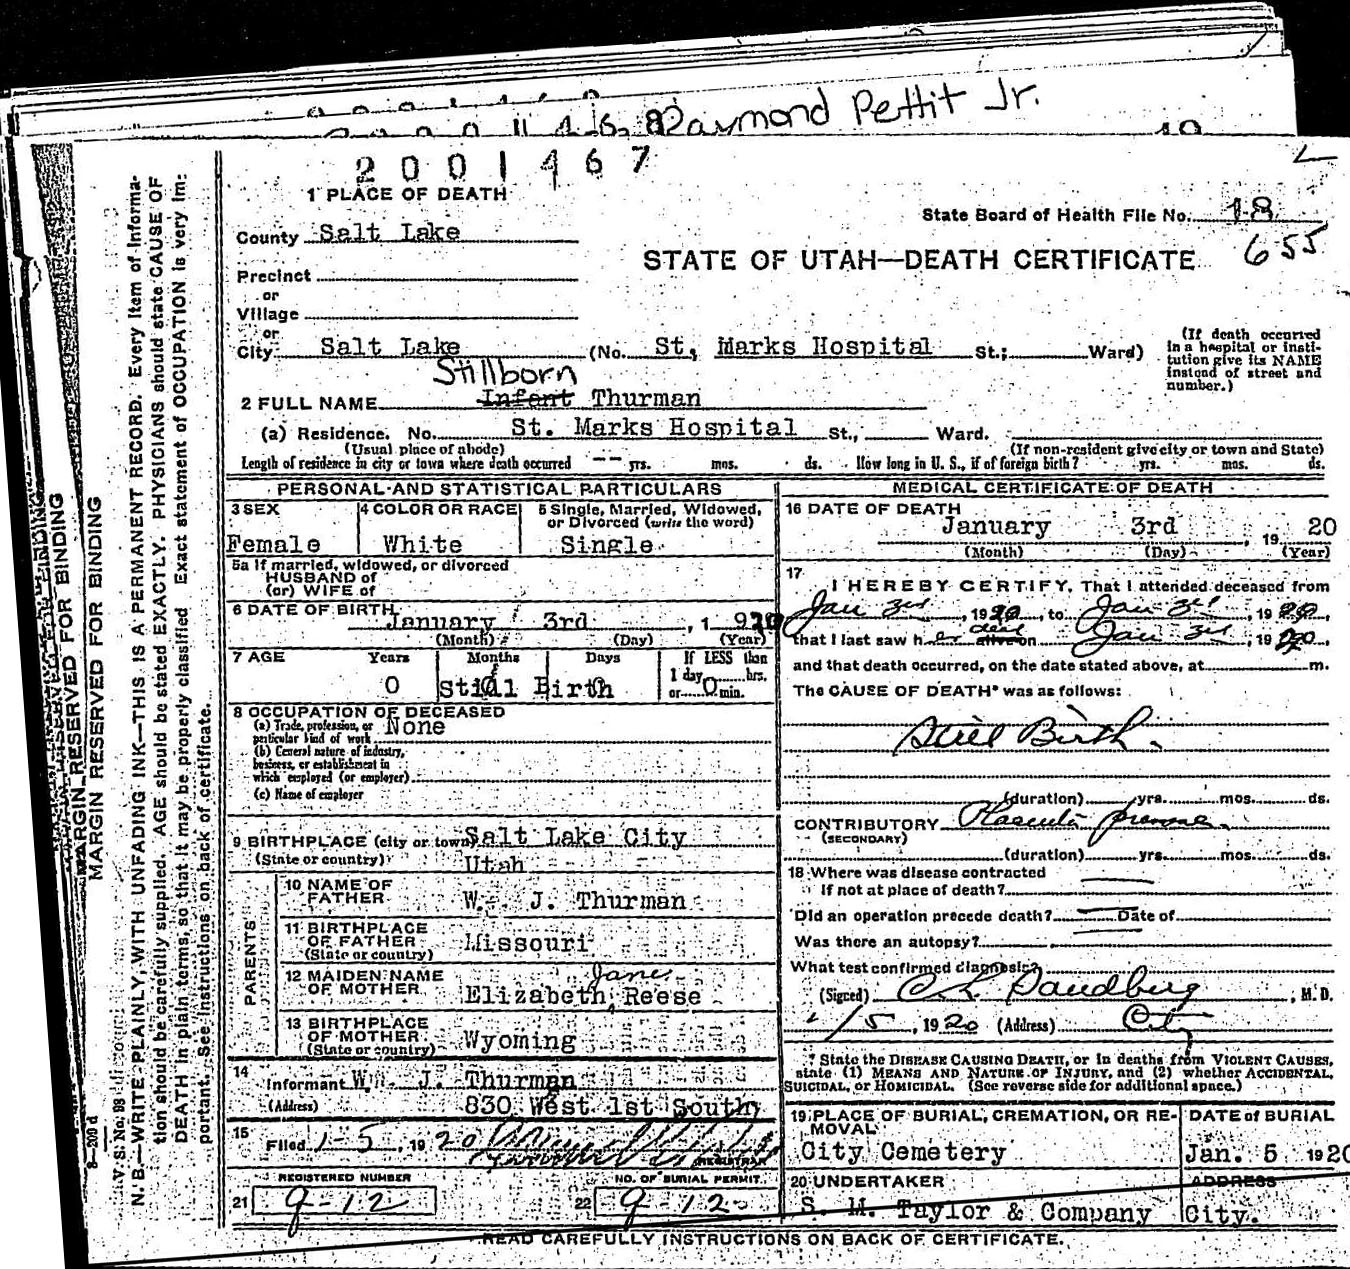 Raymond Pettit Jr.
2001467
1 PLACE OF DEATH
State Board of Health File No. 18
655
County Salt Lake
STATE OF UTAH—DEATH CERTIFICATE
Precinct
or
Village
or
City Salt Lake (No. St, Marks Hospital St.; Ward)
(If death occurred in a hospital or institution give its NAME instead of street and number.)
Stillborn
2 FULL NAME Infant Thurman
(a) Residence. No. St. Marks Hospital St., Ward.
(Usual place of abode) (If non-resident give city or town and State)
Length of residence in city or town where death occurred -- yrs. mos. ds. How long in U. S., if of foreign birth? yrs. mos. ds.
PERSONAL AND STATISTICAL PARTICULARS
3 SEX 4 COLOR OR RACE 5 Single, Married, Widowed, or Divorced (write the word)
Female White Single
5a If married, widowed, or divorced
HUSBAND of
(or) WIFE of
6 DATE OF BIRTH
January 3rd, 1920
(Month) (Day) (Year)
7 AGE Years Months Days If LESS than
1 day hrs.
0 Still Birth or 0 min.
8 OCCUPATION OF DECEASED
(a) Trade, profession, or particular kind of work None
(b) General nature of industry, business, or establishment in which employed (or employer)
(c) Name of employer
9 BIRTHPLACE (city or town) Salt Lake City
(State or country) Utah
PARENTS
10 NAME OF FATHER W. J. Thurman
11 BIRTHPLACE OF FATHER (State or country) Missouri
12 MAIDEN NAME OF MOTHER Elizabeth Jane Reese
13 BIRTHPLACE OF MOTHER (State or country) Wyoming
14 Informant W. J. Thurman
(Address) 830 West 1st South
15 Filed 1-5, 1920
REGISTRAR
REGISTERED NUMBER NO. OF BURIAL PERMIT
21 9-12 22 9-12
MEDICAL CERTIFICATE OF DEATH
16 DATE OF DEATH
January 3rd, 1920
(Month) (Day) (Year)
17
I HEREBY CERTIFY, That I attended deceased from
Jan 3rd, 1920, to Jan 3rd, 1920,
that I last saw her alive dead on Jan 3rd, 1920,
and that death occurred, on the date stated above, at m.
The CAUSE OF DEATH* was as follows:
Still Birth.
(duration) yrs. mos. ds.
CONTRIBUTORY Placenta previa.
(SECONDARY)
(duration) yrs. mos. ds.
18 Where was disease contracted
if not at place of death?
Did an operation precede death? Date of
Was there an autopsy?
What test confirmed diagnosis?
(Signed) C. L. Sandberg, M. D.
1/5, 1920 (Address) City
* State the DISEASE CAUSING DEATH, or in deaths from VIOLENT CAUSES, state (1) MEANS AND NATURE OF INJURY, and (2) whether ACCIDENTAL, SUICIDAL, or HOMICIDAL. (See reverse side for additional space.)
19 PLACE OF BURIAL, CREMATION, OR REMOVAL DATE of BURIAL
City Cemetery Jan. 5 1920
20 UNDERTAKER ADDRESS
S. M. Taylor & Company City.
READ CAREFULLY INSTRUCTIONS ON BACK OF CERTIFICATE.
MARGIN RESERVED FOR BINDING
MARGIN RESERVED FOR BINDING
N. B.—WRITE PLAINLY, WITH UNFADING INK—THIS IS A PERMANENT RECORD. Every item of Informa-
tion should be carefully supplied. AGE should be stated EXACTLY. PHYSICIANS should state CAUSE OF
DEATH in plain terms, so that it may be properly classified. Exact statement of OCCUPATION is very im-
portant. See instructions on back of certificate.